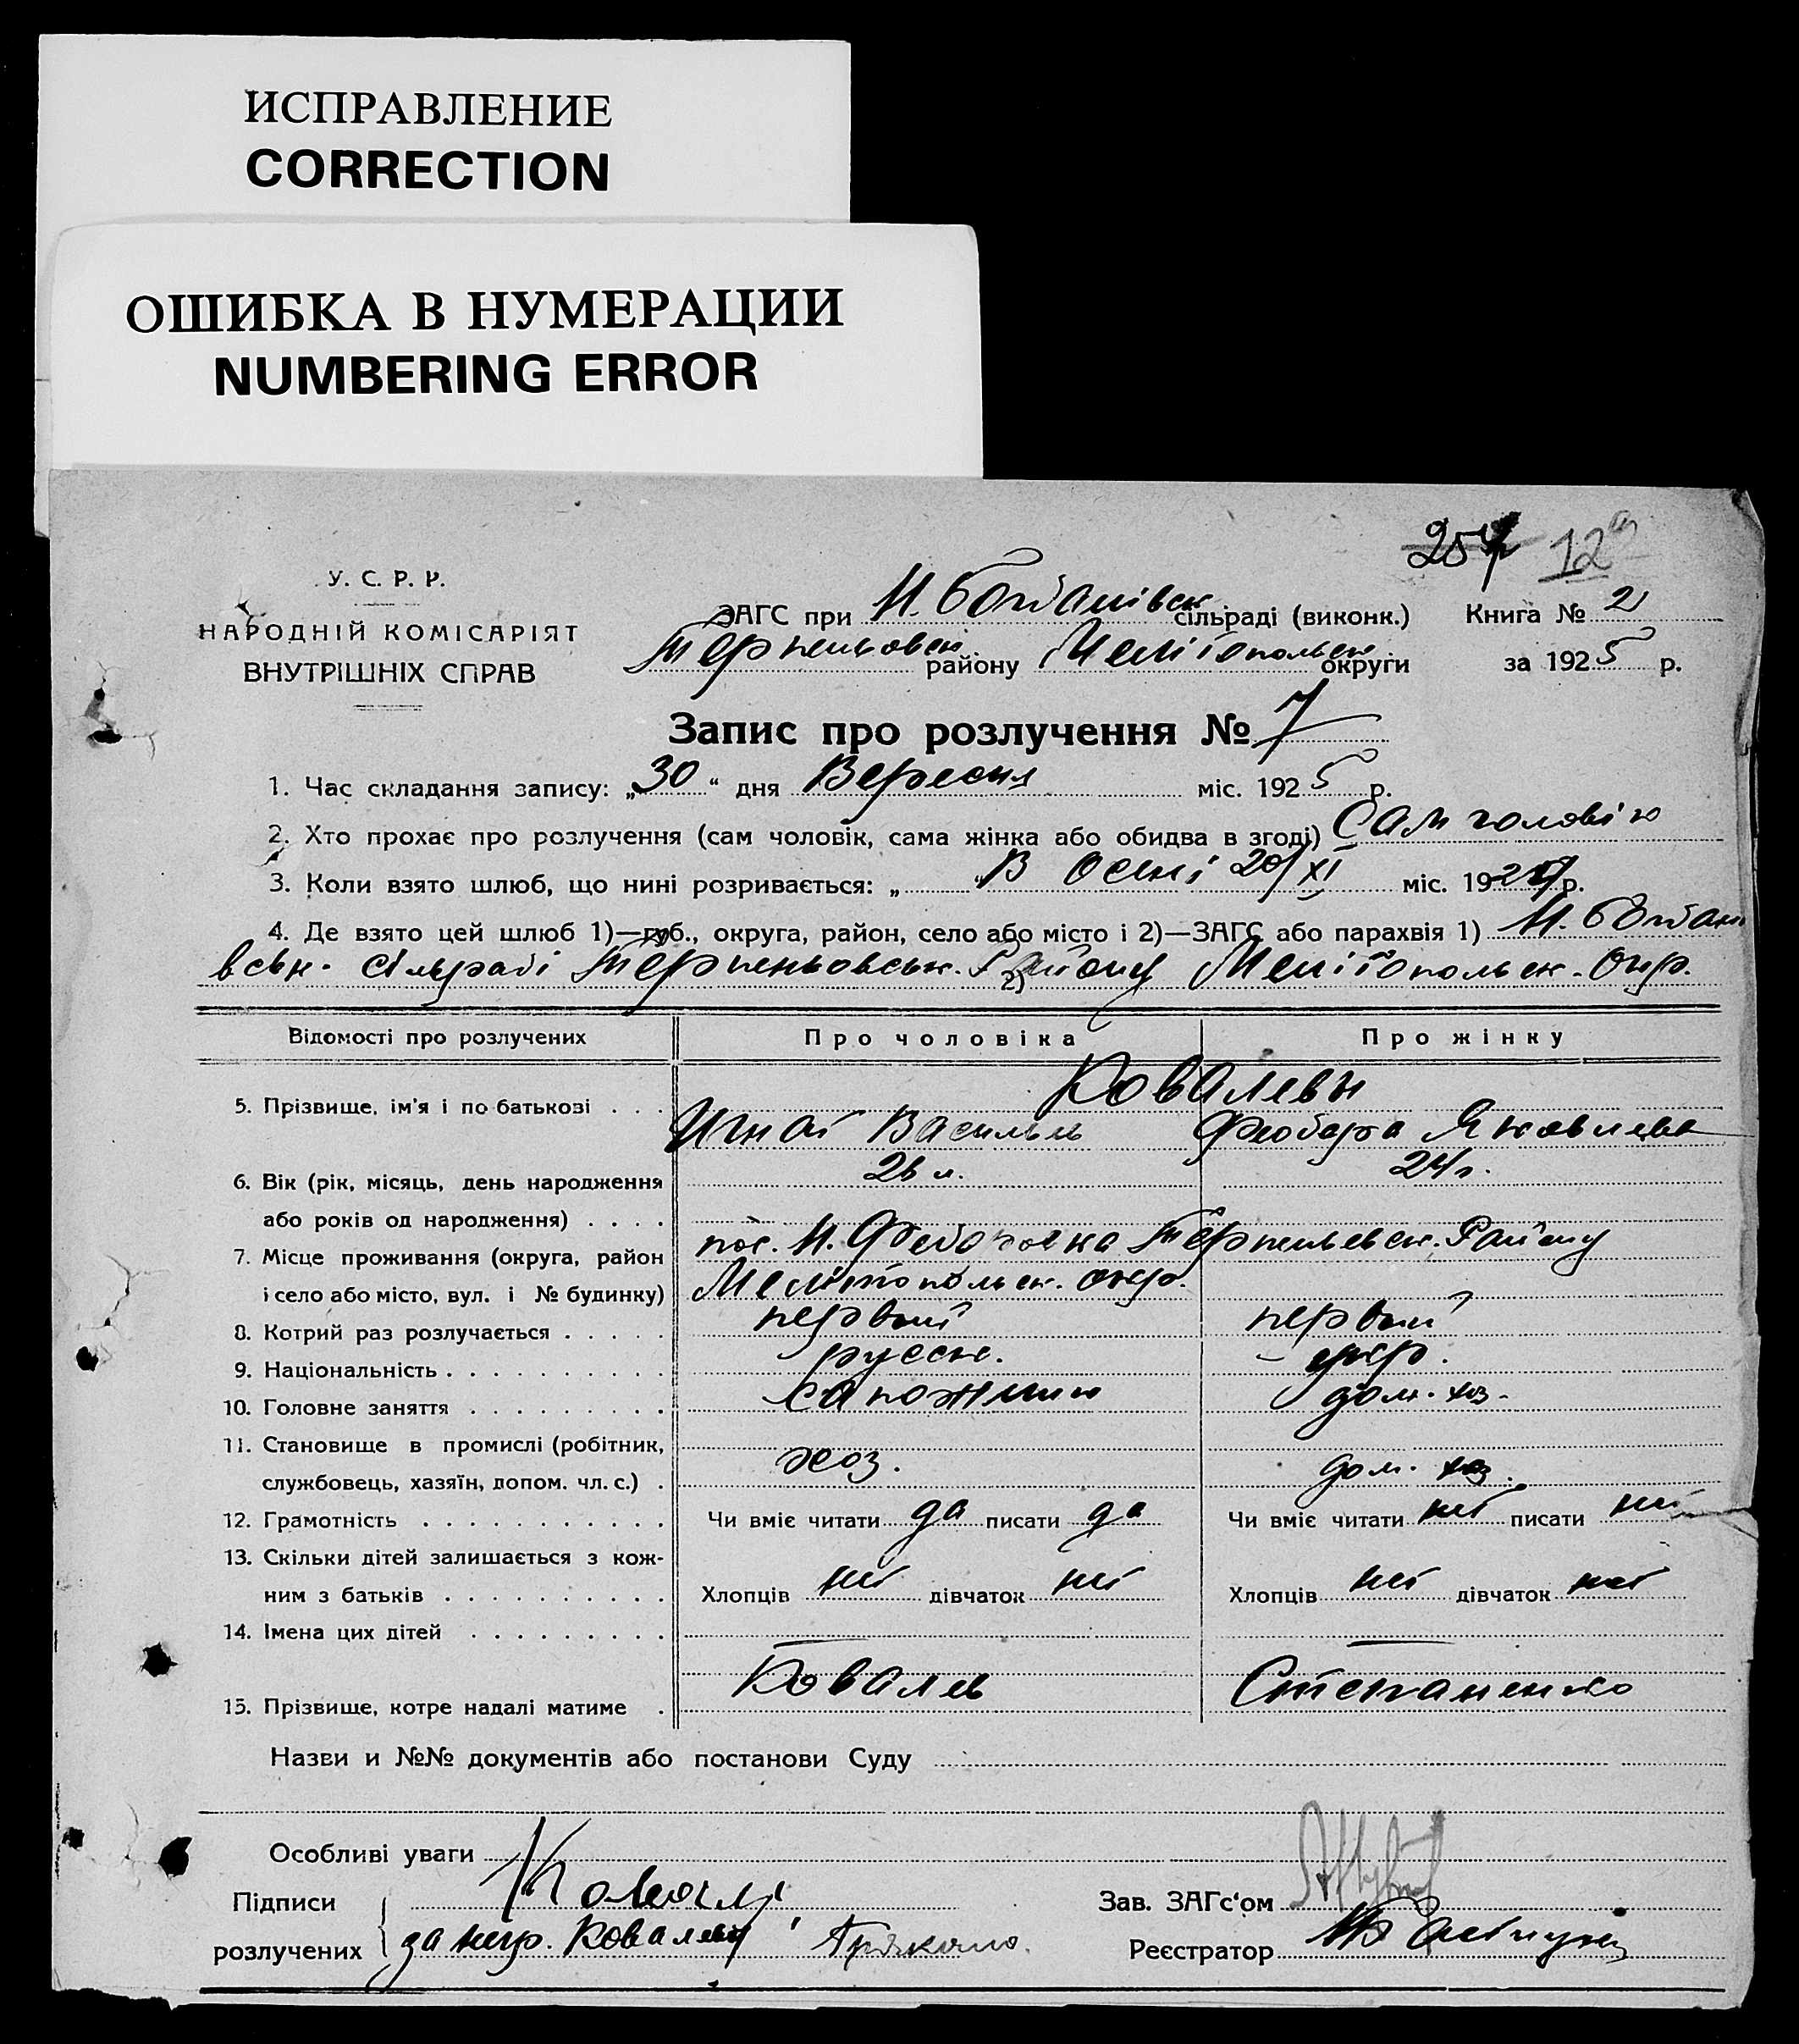 ИСПРАВЛЕНИЕ
CORRECTION
ОШИБКА В НУМЕРАЦИИ
NUMBERING ERROR
257 12
У. С. Р. Р.
НАРОДНІЙ КОМІСАРІЯТ
ВНУТРІШНІХ СПРАВ
ЗАГС при Н. Богданівськ. сільраді (виконк.) Книга № 2
Терпеньовск. району Мелітопольск. округи за 1925 р.
Запис про розлучення № 7
1. Час складання запису: „30“ дня Вересня міс. 1925 р.
2. Хто прохає про розлучення (сам чоловік, сама жінка або обидва в згоді) Сам чоловік
3. Коли взято шлюб, що нині розривається: „ “ В осені 20/XI міс. 192 р.
4. Де взято цей шлюб 1)—губ., округа, район, село або місто і 2)—ЗАГС або парахвія 1) Н. Богдані
вськ. сільраді Терпеньовськ. Району Мелітопольск. Окр.
2)
Відомості про розлучених Про чоловіка Про жінку
Ковалевы
5. Прізвище, ім'я і по батькові . . . Игнат Васильев Феодора Яковлевна
6. Вік (рік, місяць, день народження 24 г.
або років од народження) . . . .
7. Місце проживання (округа, район пос. Н. Федоровка Терпеньевск. Району
і село або місто, вул. і № будинку) Мелітопольск. окр.
8. Котрий раз розлучається . . . . . первый первый
9. Національність . . . . . . . . . . русск. укр.
10. Головне заняття . . . . . . . . . сапожник дом. хоз.
11. Становище в промислі (робітник,
службовець, хазяїн, допом. чл. с.) . хоз. дом. хоз.
12. Грамотність . . . . . . . . . . . Чи вміє читати да писати да Чи вміє читати нет писати нет
13. Скільки дітей залишається з кож-
ним з батьків . . . . . . . . . . Хлопців нет дівчаток нет Хлопців нет дівчаток нет
14. Імена цих дітей . . . . . . . . .
15. Прізвище, котре надалі матиме . Ковалев Степаненко
Назви и №№ документів або постанови Суду
Особливі уваги
Підписи Зав. ЗАГс'ом
розлучених за негр. Ковалеву Реєстратор